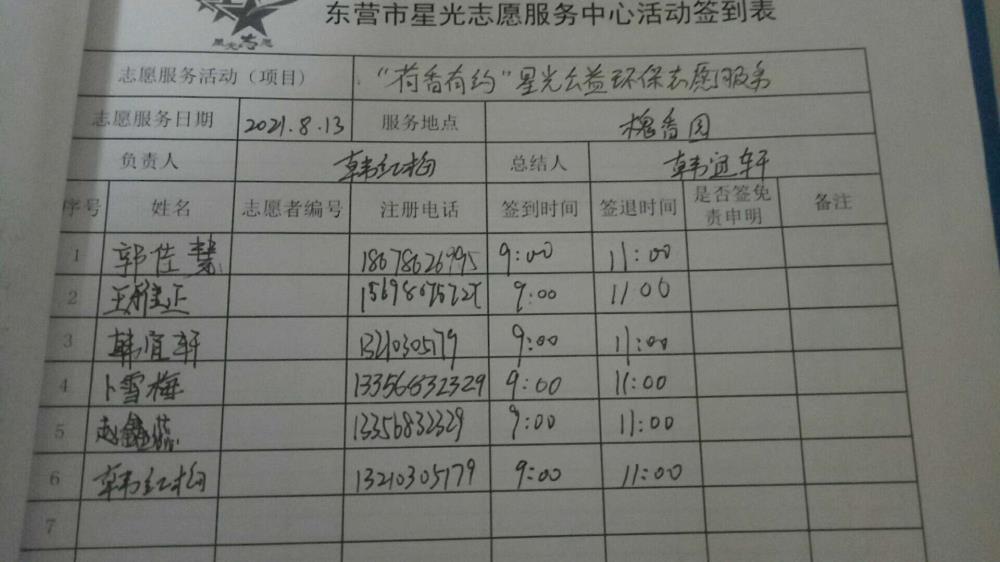 星光志愿
东营市星光志愿服务中心活动签到表
志愿服务活动（项目） "荷香有约"星光公益环保志愿服务
志愿服务日期 2021.8.13 服务地点 槐香园
负责人 韩红梅 总结人 韩宜轩
序号 姓名 志愿者编号 注册电话 签到时间 签退时间 是否签免责申明 备注
1 郭佳慧 18678626995 9:00 11:00
2 王 正 9:00 11 00
3 韩宜轩 13210305179 9:00 11:00
4 卜雪梅 13356832329 9:00 11:00
5 赵 13356832329 9:00 11:00
6 韩红梅 13210305179 9:00 11:00
7